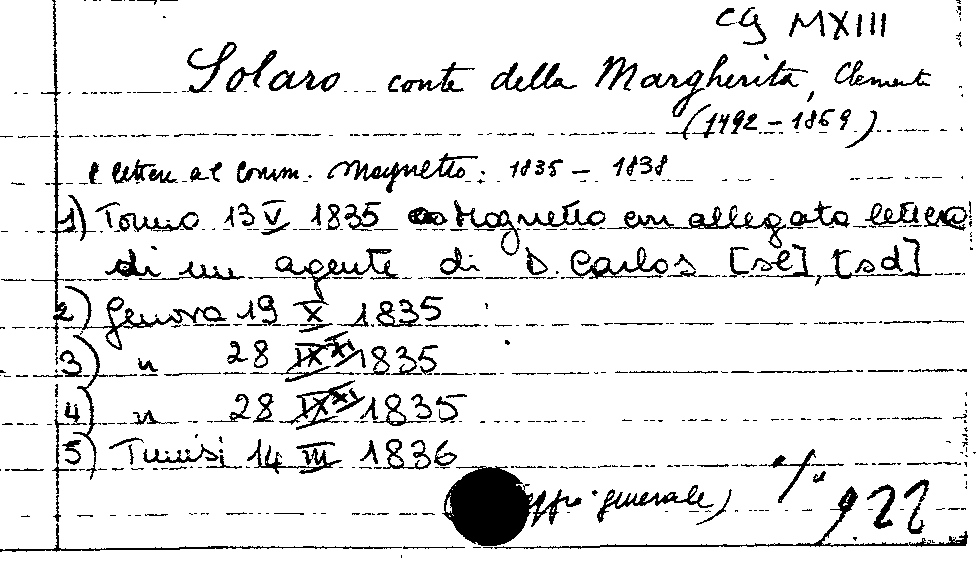 CG MXIII
Solaro conte della Margherita, Clemente
(1792 - 1869)
lettere al Comm. Magnetto: 1835 - 1838
1) Torino 13 V 1835 a Magnetto con allegato lettera
di un agente di D. Carlos [sl], [sd]
2) Genova 19 X 1835
3) " 28 XI 1835
4) " 28 XI 1835
5) Tunisi 14 III 1836
generale)
922